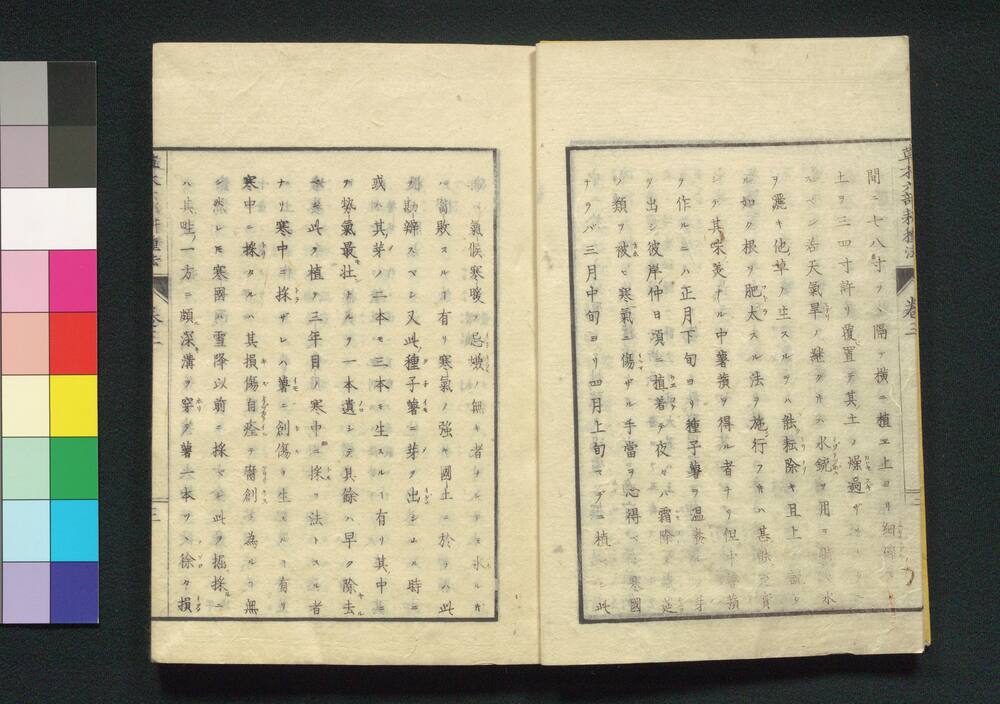 草木六部耕種法 卷三
間ニ七八寸ツヽ隔テ横ニ植エ上ヨリ細碎
土ヲ三四寸許リ覆置テ其土ノ燥過ザ
ベシ若天氣旱ノ繼クキハ水銃ヲ用テ 水
ヲ灑キ他草ノ生スルヲハ能耘除キ且上
ル如ク根ヲ肥太スル法ヲ施行フキハ甚
シテ其味美ナル中薯蕷ヲ得ル者ナリ但
ヲ作ルニハ正月下旬ヨリ種子薯ヲ温養 芽
ヲ出シ彼岸仲日頃ニ植著テ夜々ハ霜除
ノ類ヲ被ヒ寒氣ニ傷ザル手當ヲ心得ベシ寒國
ナラバ三月中旬ヨリ四月上旬マデニ植ベシ此
氣候寒暖ノ忌嫌ハ無キ者ナレ
腐敗スルヿ有リ寒氣ノ強キ國土ニ於テハ此
勘辨スベシ又此種子薯ニ芽ヲ出シムル時ニ
或ハ其芽ノ二本モ三本モ生スルヿ有リ其中ニ
ガ勢氣最壮ナルヲ一本遺シテ其餘ハ早ク除去
此ヲ植テ三年目ノ寒中ニ採ヲ法トスル者
ナリ寒中ニ採ザレハ薯ニ創傷ヲ生スルヿ有リ
寒中ニ採タルハ其損傷自痊テ腐創ヲ為ルヿ無
然レモ寒國ハ雪降以前ニ採ベシ此ヲ掘採ニ
ハ其畦ノ一方ニ頗深溝ヲ穿テ薯一本ヅヽ徐々損
卷三
三